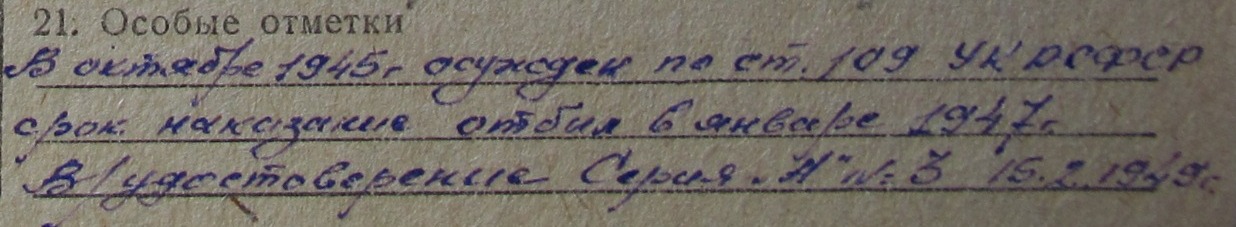 21. Особые отметки
В октябре 1945г осужден по ст. 109 УК РСФСР
срок наказание отбил в январе 1947г.
В/удостоверение Серия "А" № 3 15.2.1949г.